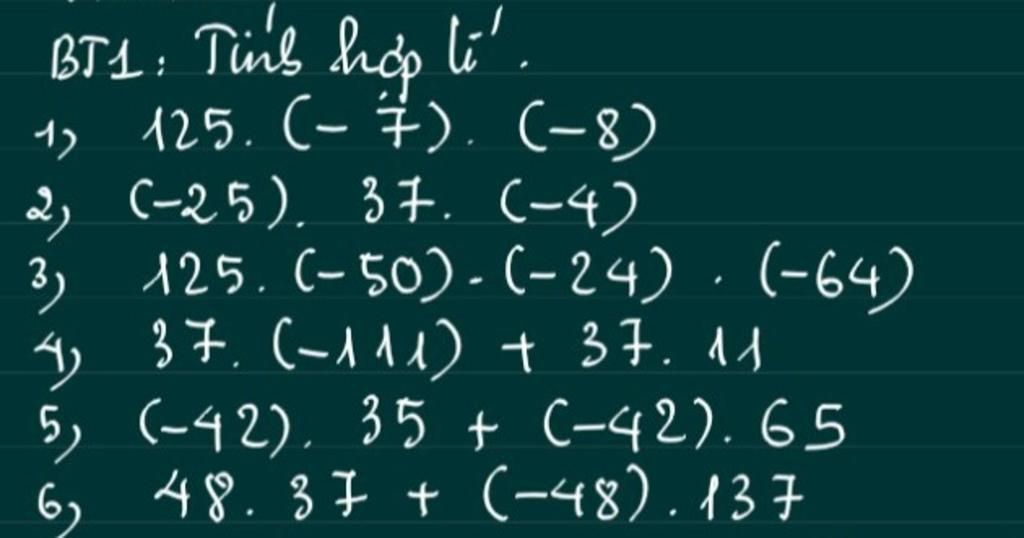 BT1: Tính hợp lí.
1, 125. (-7). (-8)
2, (-25). 37. (-4)
3, 125. (-50) - (-24) . (-64)
4, 37. (-111) + 37. 11
5, (-42). 35 + (-42). 65
6, 48. 37 + (-48). 137